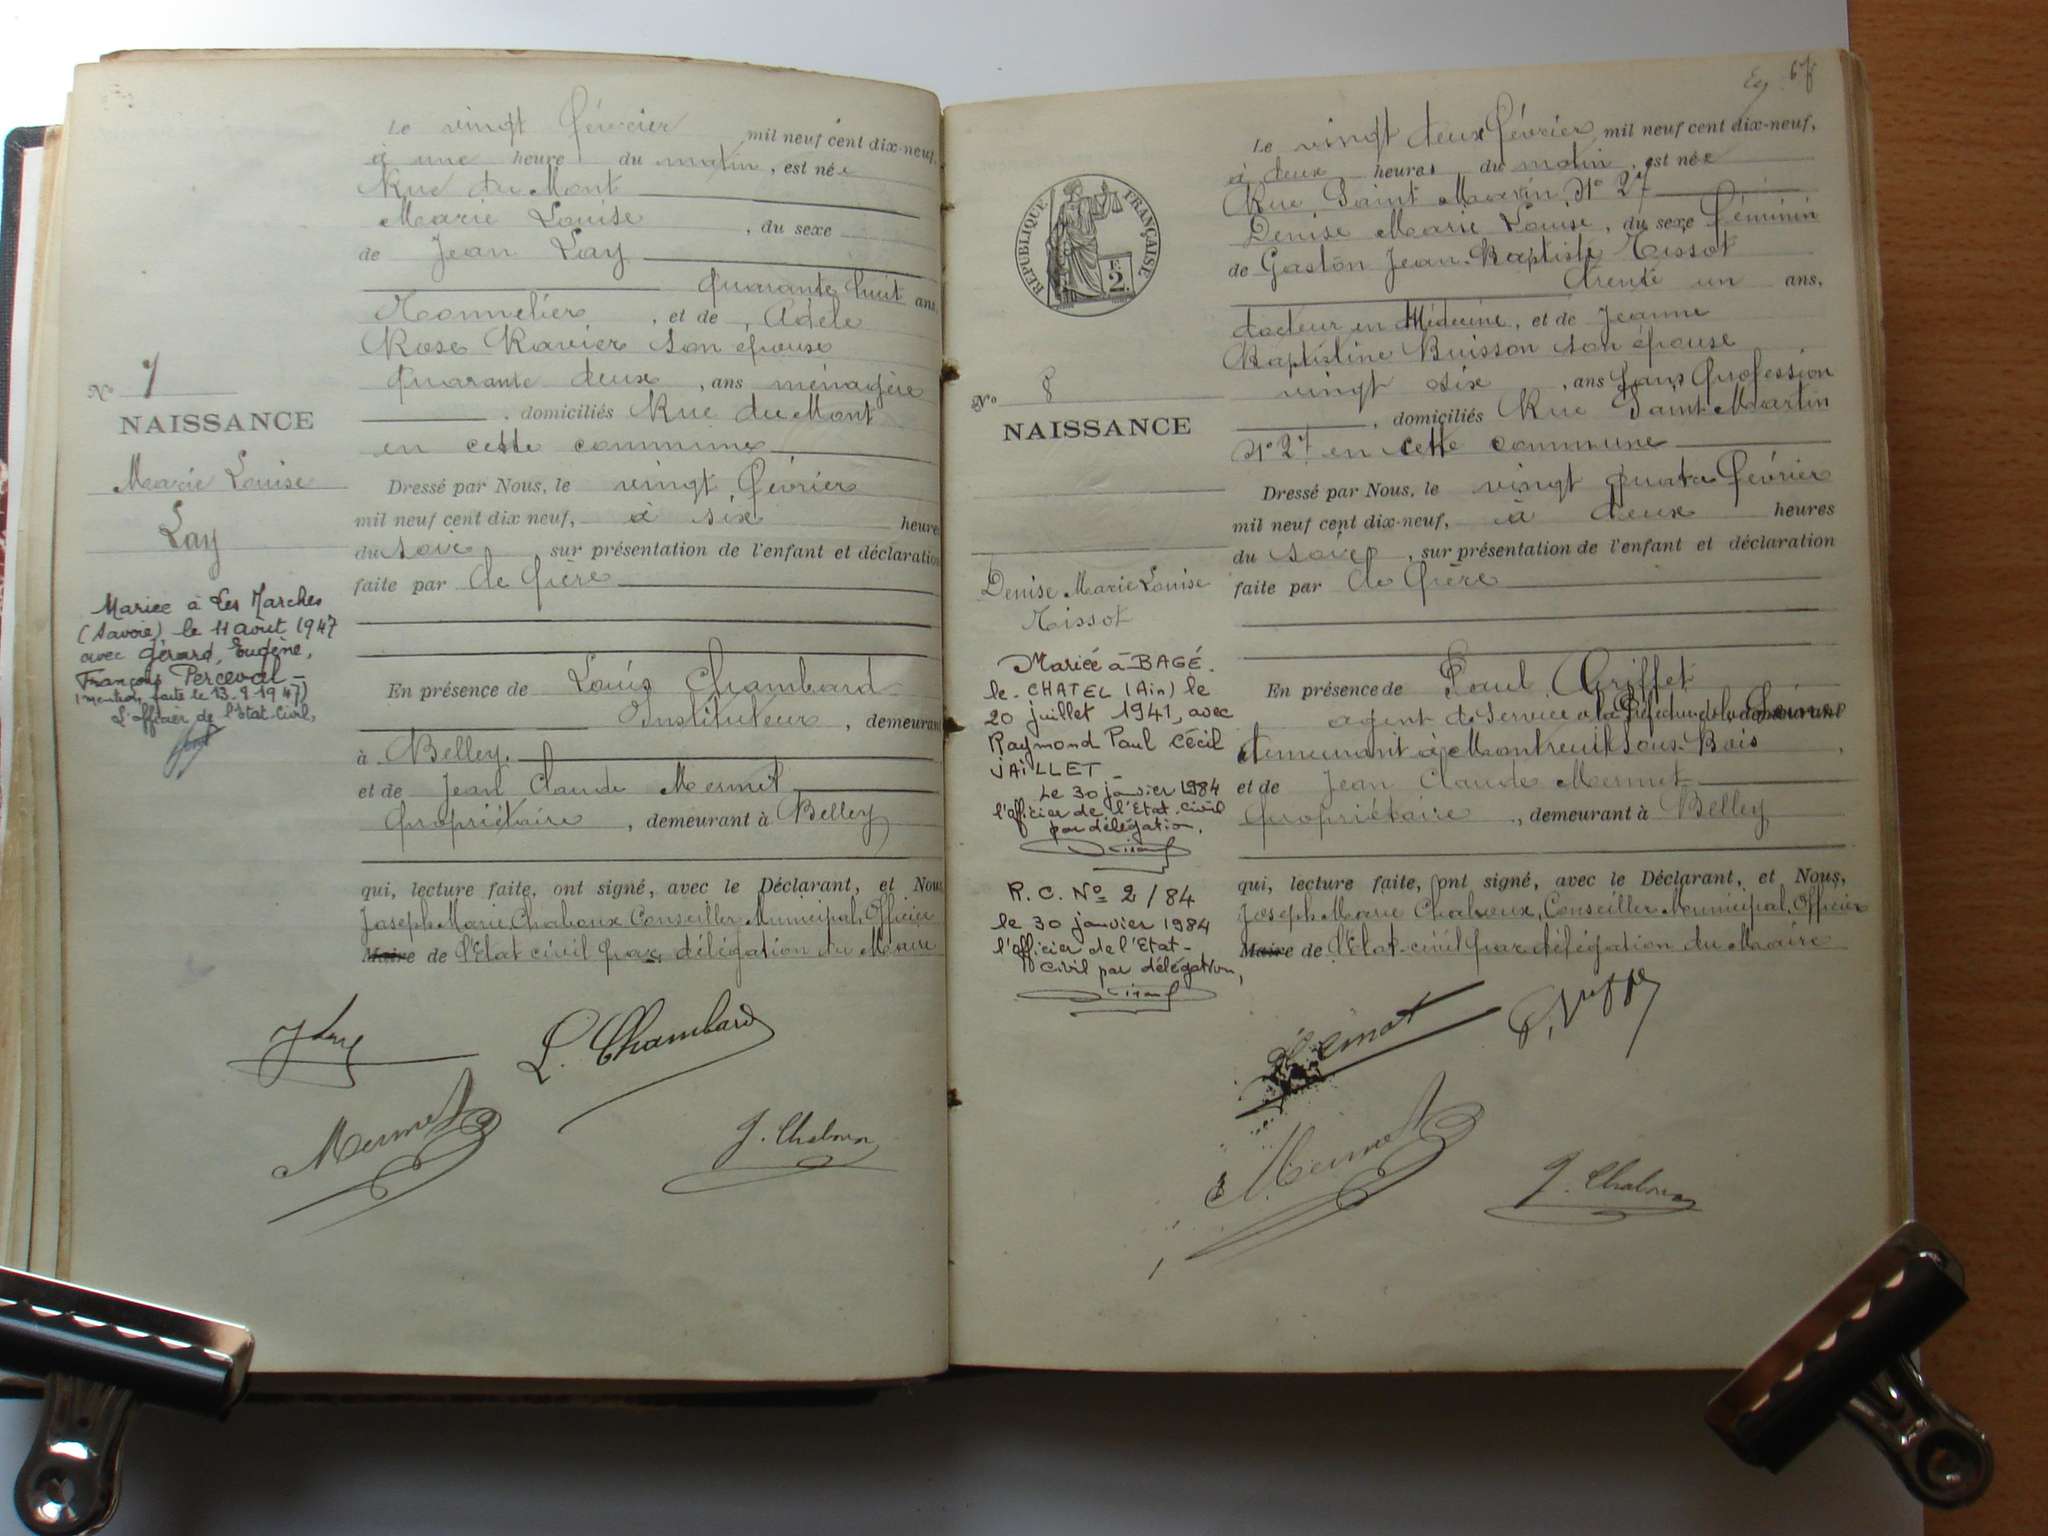 Le vingt Février mil neuf cent dix-neuf,
à une heure du matin, est née
Rue du Mont
Marie Louise, du sexe
de Jean Lay
quarante huit ans
Tonnelier, et de, Adèle
Rose Ravier son épouse
quarante deux, ans ménagère
, domiciliés Rue du Mont
en cette commune
Dressé par Nous, le vingt Février
mil neuf cent dix neuf, à six heures
du soir, sur présentation de l'enfant et déclaration
faite par le Père
En présence de Louis Chambard
Instituteur, demeurant
à Belley
et de Jean Claude Mermet
propriétaire, demeurant à Belley
qui, lecture faite, ont signé, avec le Déclarant, et Nous
Joseph Marie Chaboux Conseiller Municipal, Officier
Maire de l'Etat civil par délégation du Maire
J Lay
L. Chambard
Mermet
J. Chaboux
No 7
NAISSANCE
Marie Louise
Lay
Mariée à Les Marches
(Savoie) le 11 août 1947
avec Gérard, Eugène,
François Perceval -
(mention faite le 13.8.1947)
L'officier de l'Etat-Civil,
67
Le vingt deux Février mil neuf cent dix-neuf,
à deux heures du matin, est née
Rue Saint Martin N° 27
Denise Marie Louise, du sexe Féminin
de Gaston Jean-Baptiste Tissot
trente un ans,
docteur en Médecine, et de Jeanne
Baptistine Buisson son épouse
vingt six, ans sans Profession
, domiciliés Rue Saint-Martin
N° 27 en cette commune
Dressé par Nous, le vingt quatre Février
mil neuf cent dix-neuf, à deux heures
du soir, sur présentation de l'enfant et déclaration
faite par le Père
En présence de Paul Griffet
agent de Service à la Préfecture de la Seine demeurant
demeurant à Montreuil Sous-Bois,
et de Jean Claude Mermet
propriétaire, demeurant à Belley
qui, lecture faite, ont signé, avec le Déclarant, et Nous,
Joseph Marie Chaboux, Conseiller Municipal, Officier
Maire de l'Etat-civil par délégation du Maire
Mermet
J. Chaboux
RÉPUBLIQUE FRANÇAISE
F.
2.
No 8
NAISSANCE
Denise Marie Louise
Tissot
Mariée à BAGÉ.
le-CHATEL (Ain) le
20 juillet 1941, avec
Raymond Paul Cécil
JAILLET -
Le 30 janvier 1984
l'officier de l'Etat-Civil
par délégation,
R.C. No 2/84
le 30 janvier 1984
l'officier de l'Etat-
Civil par délégation,